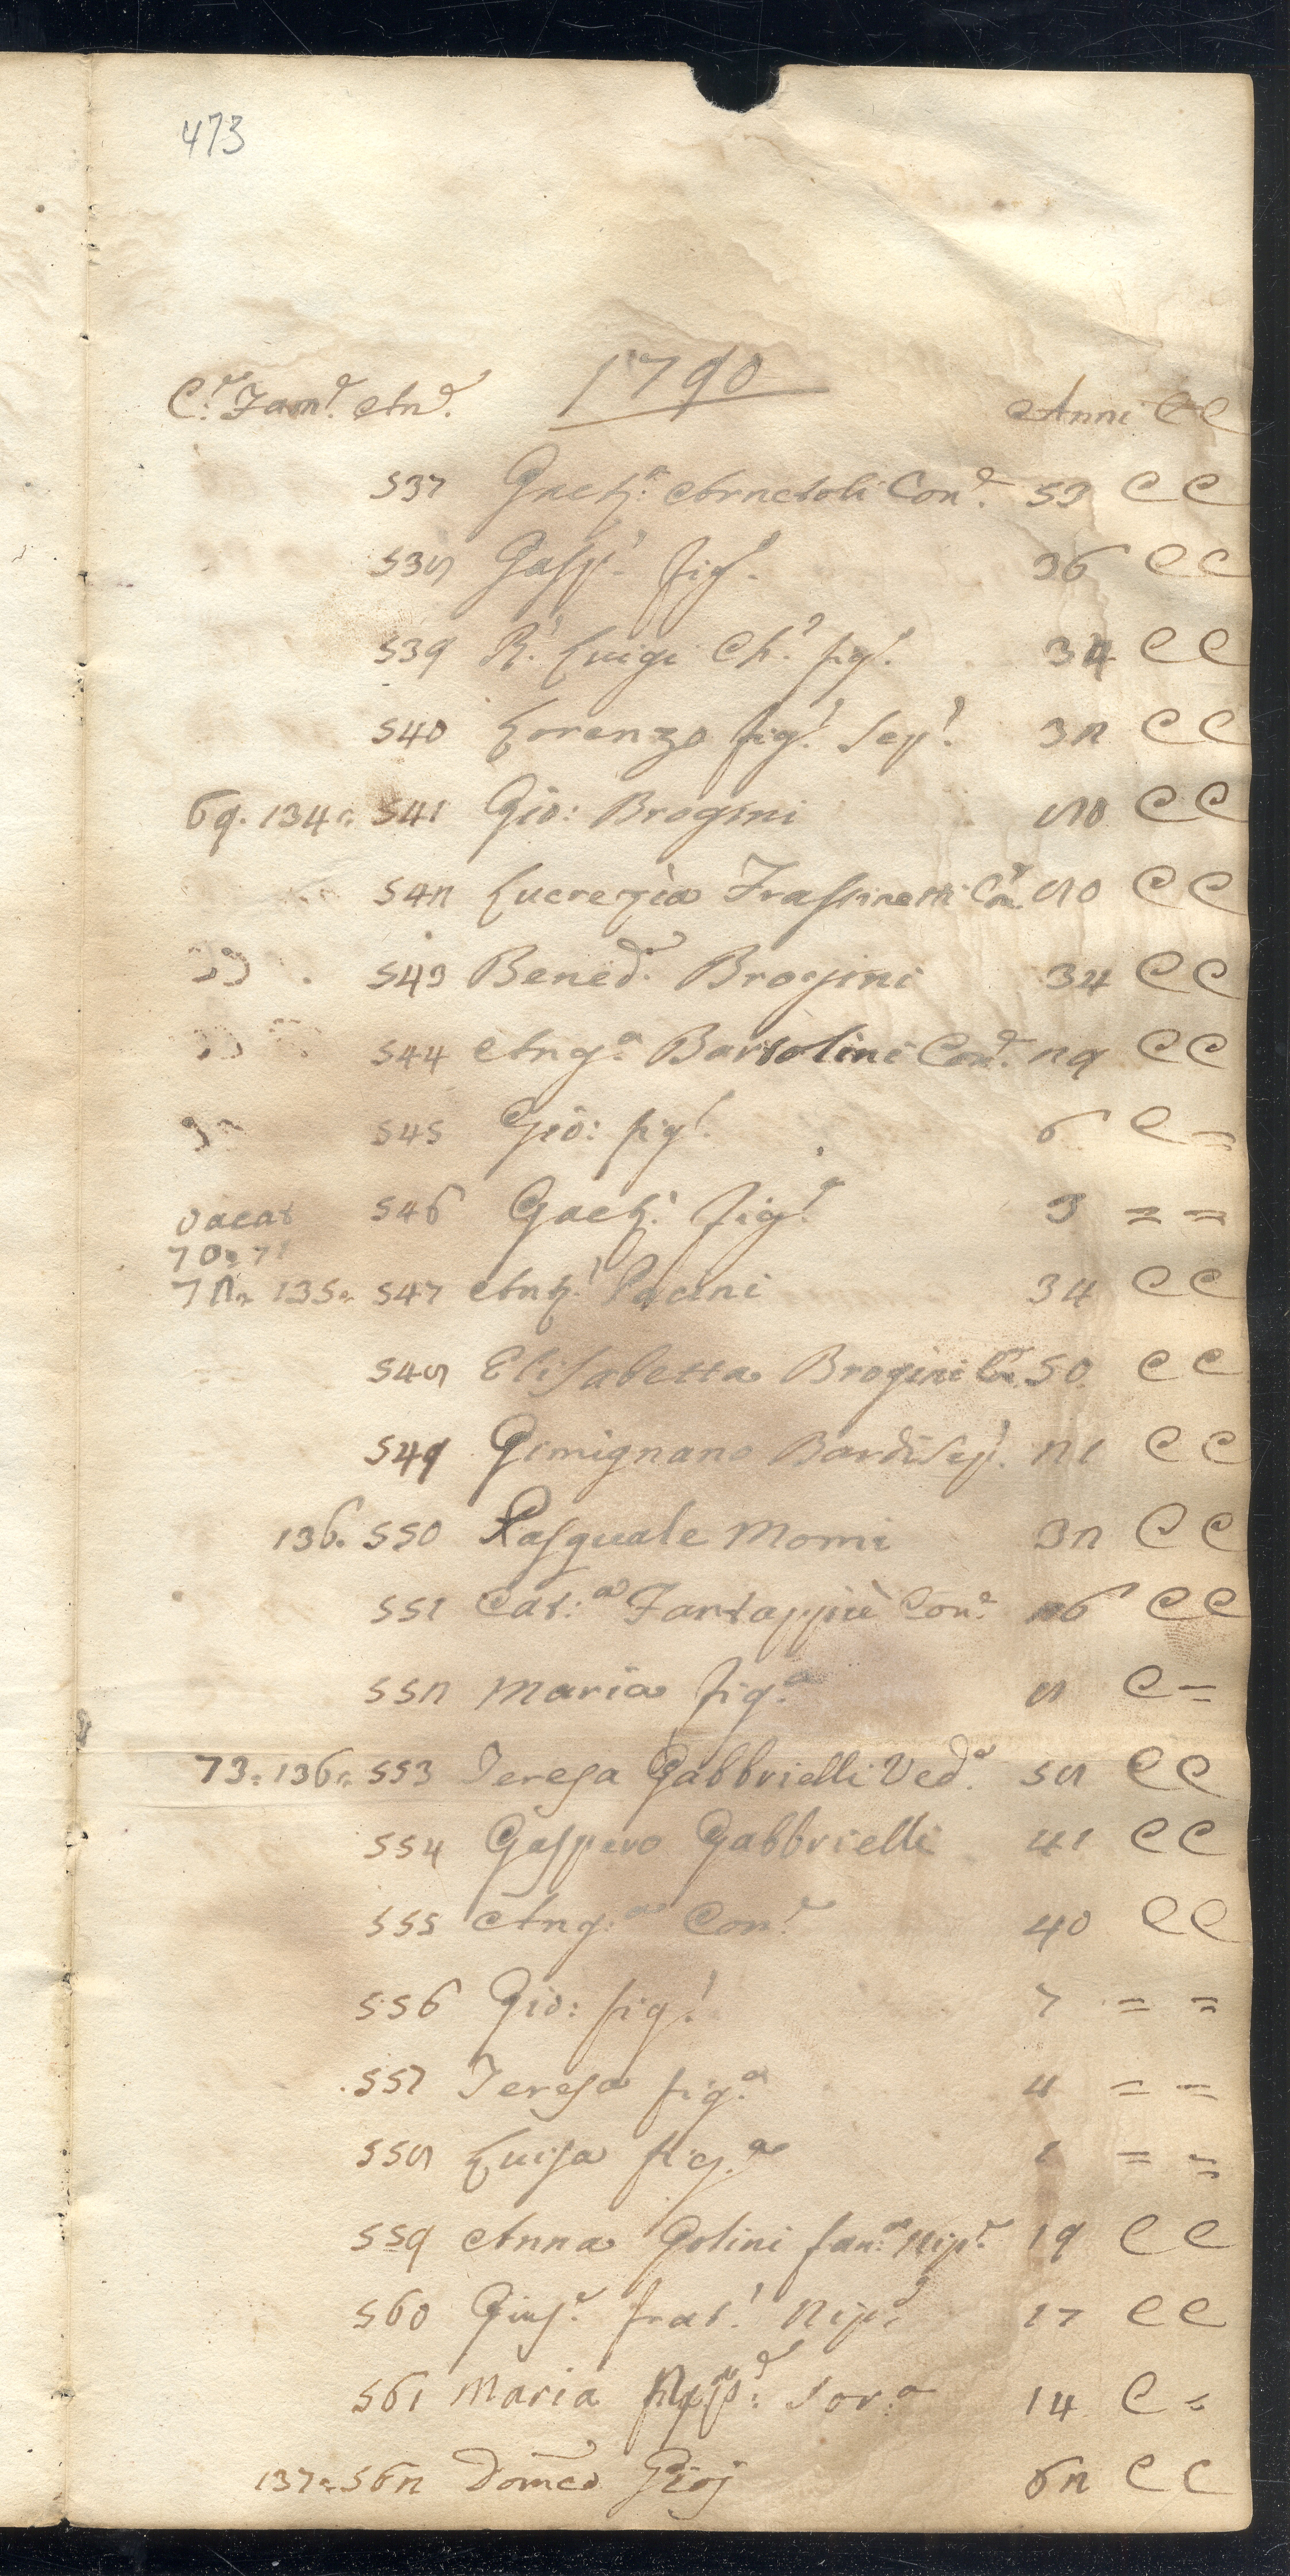 473
1790
C.e Fam.e An.e Anni C C
537 Gaet.a Arnetoli Con.e 53 C C
538 Gasp.o fig.o 36 C C
539 R. Luigi Ch.o fig.o 34 C C
540 Lorenzo fig.o Sep.o 32 C C
69. 134. 541 Gio: Brogini 80 C C
542 Lucrezia Frassinetti Con.e 80 C C
543 Bened.o Brogini 34 C C
544 Ang.a Bartolini Con.e 29 C C
545 Gio: fig.o 6 C =
vacat 546 Gaet.a fig.a 3 = =
70. 71
72. 135. 547 Ant.o Pacini 34 C C
548 Elisabetta Brogini Con.e 50 C C
549 Gimignano Bardi Sep.o 21 C C
136. 550 Pasquale Momi 32 C C
551 Cat:a Fartappiè Con.e 26 C C
552 Maria fig.a 8 C =
73. 136. 553 Teresa Gabbrielli Ved.a 58 C C
554 Gaspero Gabbrielli 41 C C
555 Ang.a Con.e 40 C C
556 Gio: fig.o 7 = =
557 Teresa fig.a 4 = =
558 Luisa fig.a 1 = =
559 Anna Golini fan.a Nip.e 19 C C
560 Gius.e frat.o Nip.e 17 C C
561 Maria Sor.a 14 C =
137. 562 Domco Pioj 62 C C